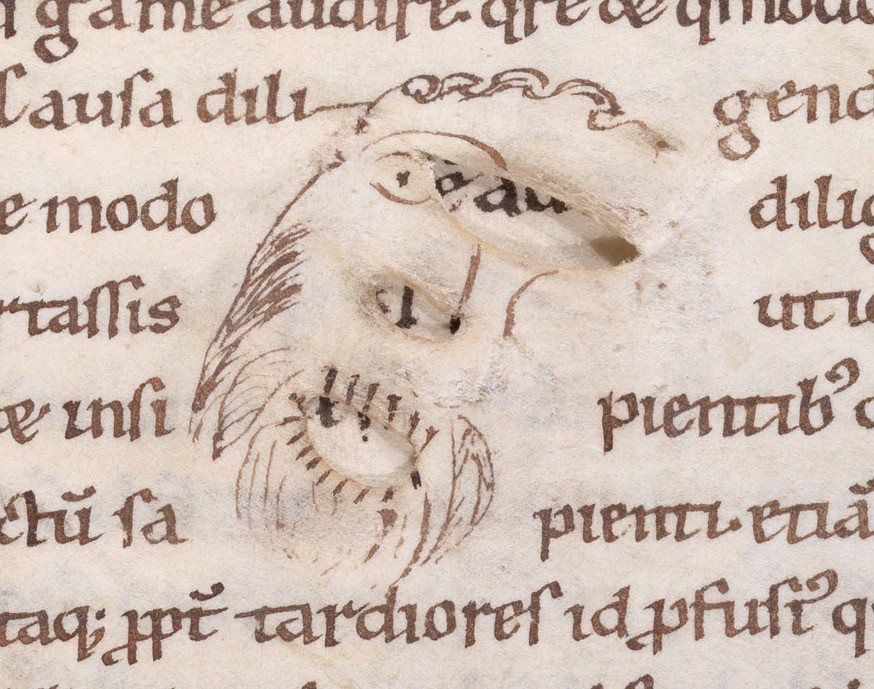 game audire. q̄re &
Causa dili gend
e modo dilig
tassis utiq
insi pientib᾽
ctū sa pienti. etiā
taq; ꝓpt̄ tardiores id ꝓfusi᾽